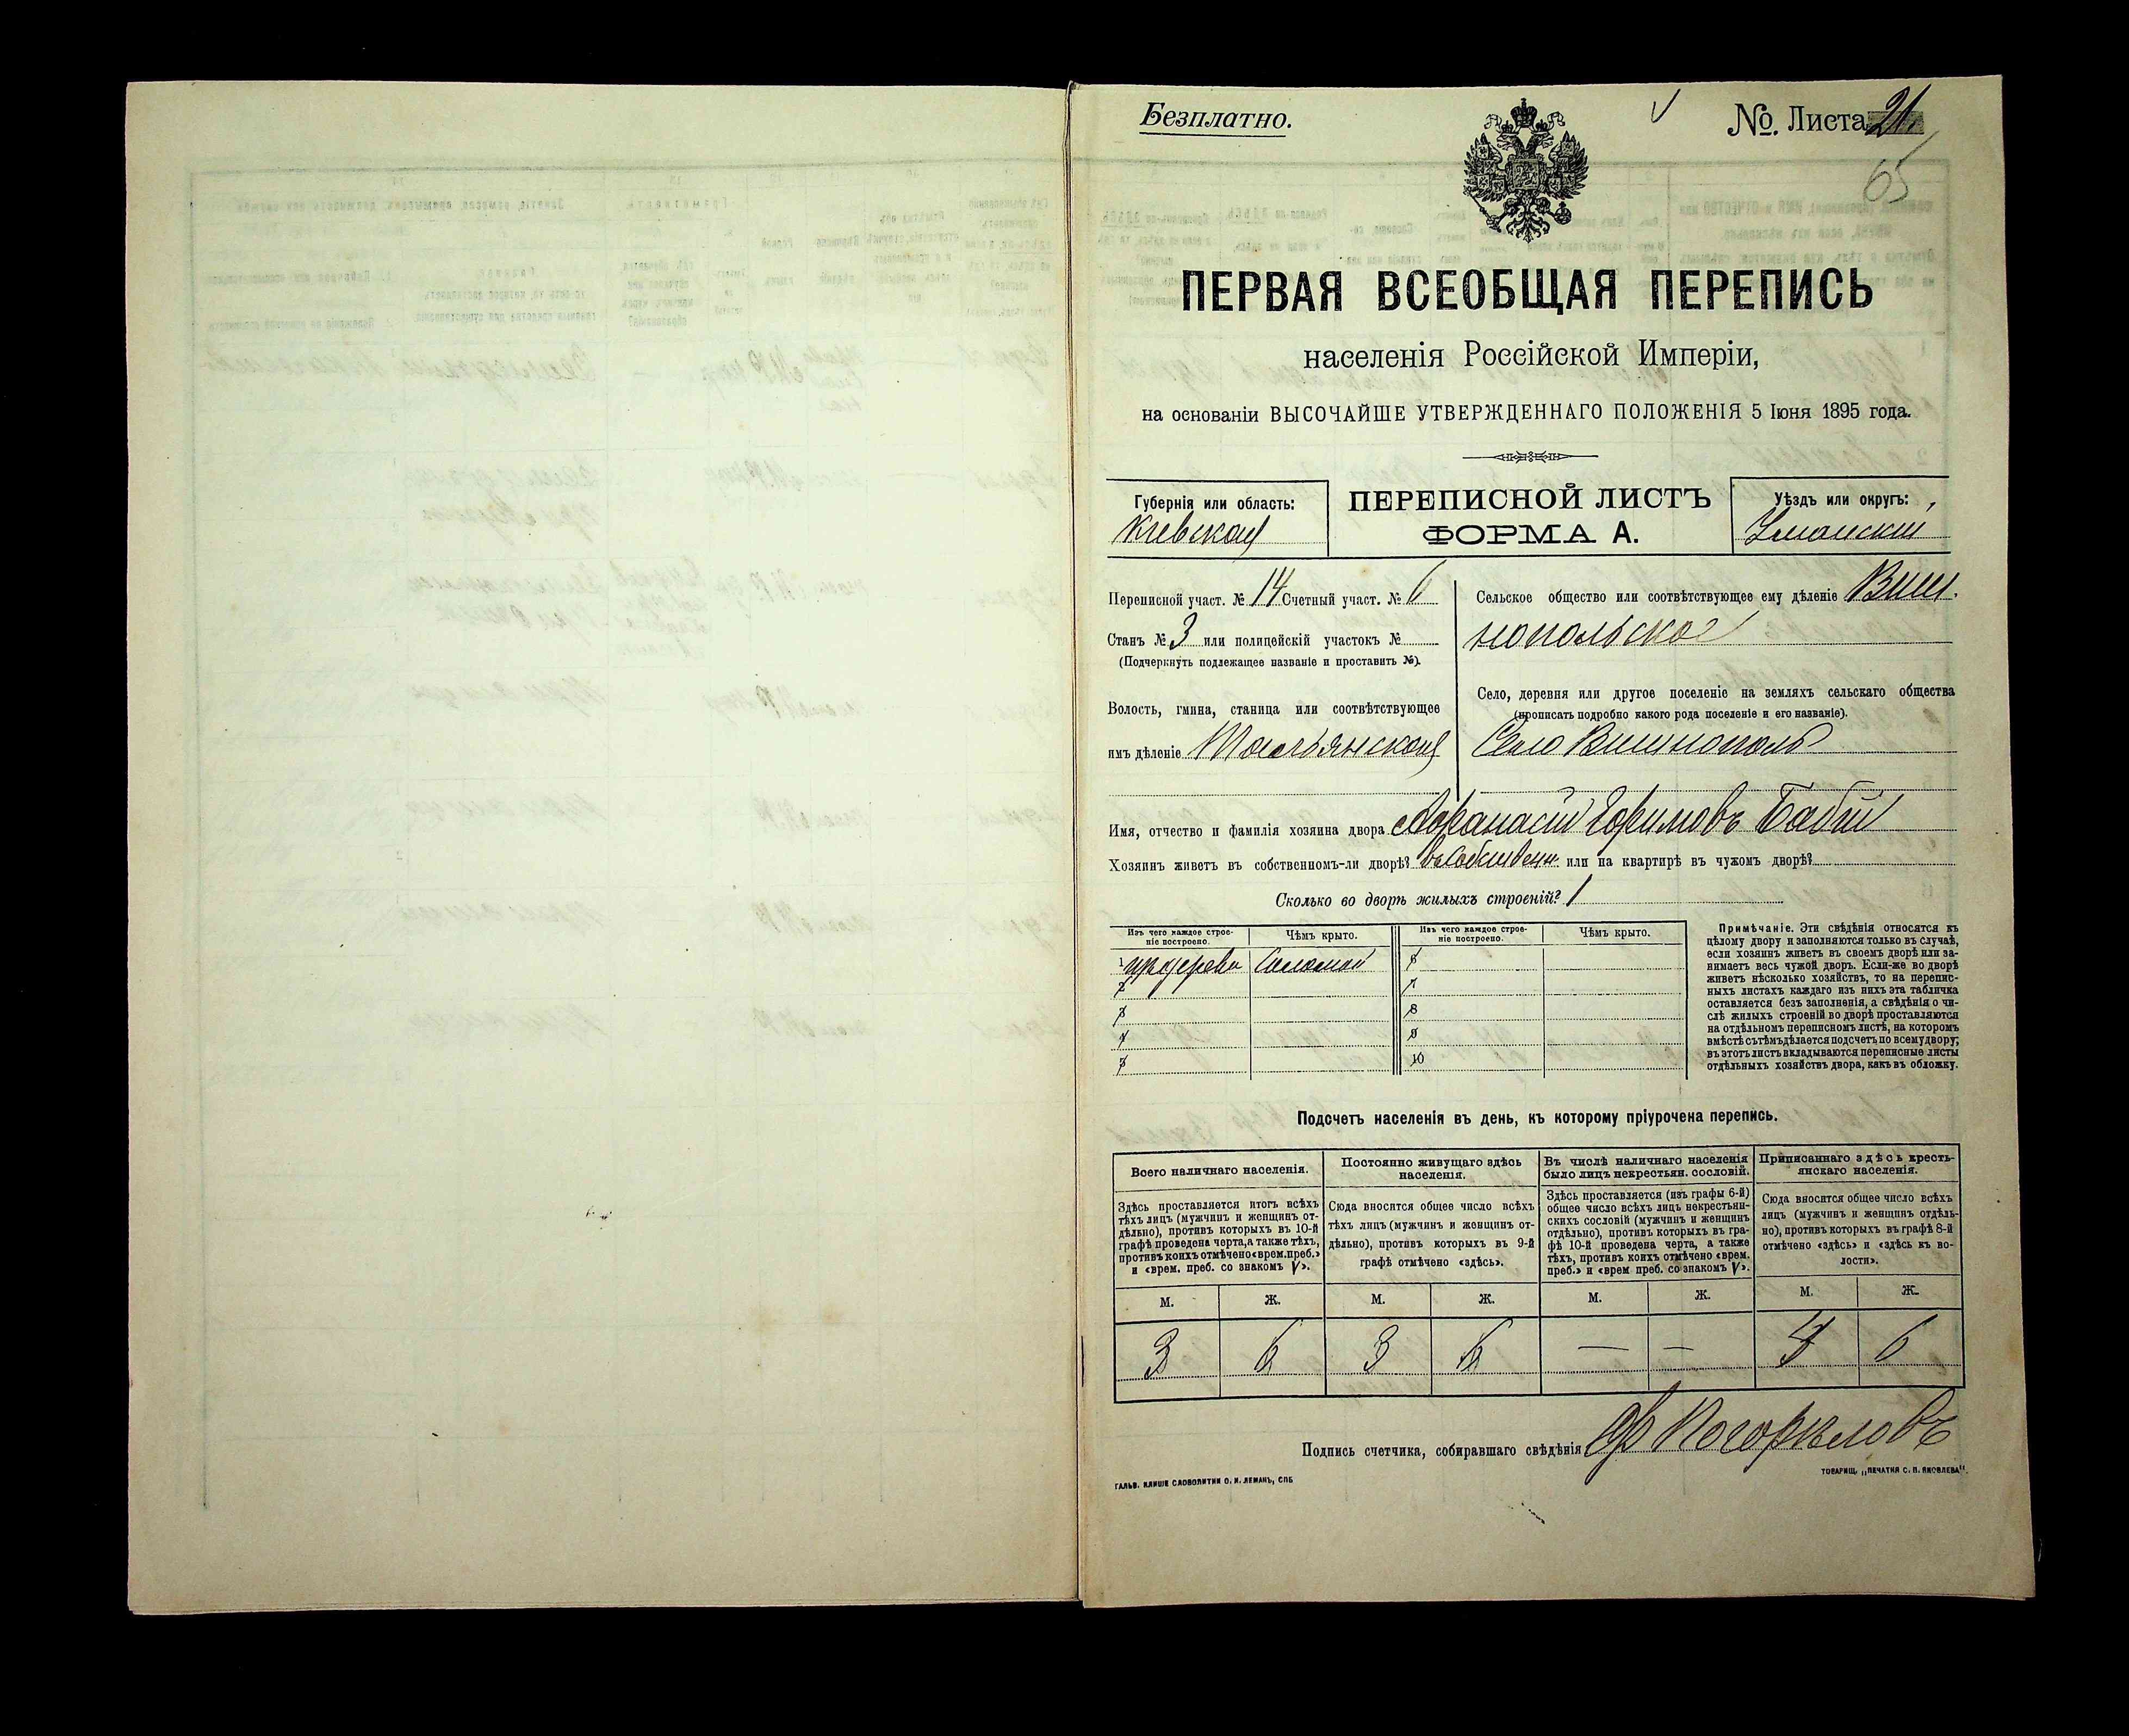 Безплатно.
№. Листа 21.
65
ПЕРВАЯ ВСЕОБЩАЯ ПЕРЕПИСЬ
населенія Россійской Имперіи,
на основаніи ВЫСОЧАЙШЕ УТВЕРЖДЕННАГО ПОЛОЖЕНІЯ 5 Іюня 1895 года.
Губернія или область:
Кіевская
ПЕРЕПИСНОЙ ЛИСТЪ
ФОРМА А.
Уѣздъ или округъ:
Уманскій
Переписной участ. № 14 Счетный участ. № 6
Станъ № 3 или полицейскій участокъ №
(Подчеркнуть подлежащее названіе и проставить №).
Волость, гмина, станица или соотвѣтствующее
имъ дѣленіе Тальянская
Сельское общество или соотвѣтствующее ему дѣленіе Виш
нопольское
Село, деревня или другое поселеніе на земляхъ сельскаго общества
(прописать подробно какого рода поселеніе и его названіе).
Село Вишнополь
Имя, отчество и фамилія хозяина двора Афанасій Ефимовъ Бабій
Хозяинъ живетъ въ собственномъ-ли дворѣ? въ собственн. или на квартирѣ въ чужомъ дворѣ?
Сколько во дворѣ жилыхъ строеній? 1
Изъ чего каждое строе-
ніе построено.
Чѣмъ крыто.
Изъ чего каждое строе-
ніе построено.
Чѣмъ крыто.
1 изъ дерева Соломой 6
2 7
3 8
4 9
5 10
Примѣчаніе. Эти свѣдѣнія относятся къ
цѣлому двору и заполняются только въ случаѣ,
если хозяинъ живетъ въ своемъ дворѣ или за-
нимаетъ весь чужой дворъ. Если-же во дворѣ
живетъ нѣсколько хозяйствъ, то на перепис-
ныхъ листахъ каждаго изъ нихъ эта табличка
оставляется безъ заполненія, а свѣдѣнія о чи-
слѣ жилыхъ строеній во дворѣ проставляются
на отдѣльномъ переписномъ листѣ, на которомъ
вмѣстѣ съ тѣмъ дѣлается подсчетъ по всему двору;
въ этотъ листъ вкладываются переписные листы
отдѣльныхъ хозяйствъ двора, какъ въ обложку.
Подсчетъ населенія въ день, къ которому пріурочена перепись.
Всего наличнаго населенія.
Здѣсь проставляется итогъ всѣхъ
тѣхъ лицъ (мужчинъ и женщинъ от-
дѣльно), противъ которыхъ въ 10-й
графѣ проведена черта, а также тѣхъ,
противъ коихъ отмѣчено «врем. преб.»
и «врем. преб. со знакомъ V».
Постоянно живущаго здѣсь
населенія.
Сюда вносится общее число всѣхъ
тѣхъ лицъ (мужчинъ и женщинъ от-
дѣльно), противъ которыхъ въ 9-й
графѣ отмѣчено «здѣсь».
Въ числѣ наличнаго населенія
было лицъ некрестьян. сословій.
Здѣсь проставляется (изъ графы 6-й)
общее число всѣхъ лицъ некрестьян-
скихъ сословій (мужчинъ и женщинъ
отдѣльно), противъ которыхъ въ гра-
фѣ 10-й проведена черта, а также
тѣхъ, противъ коихъ отмѣчено «врем.
преб.» и «врем преб. со знакомъ V».
Приписаннаго здѣсь кресть-
янскаго населенія.
Сюда вносится общее число всѣхъ
лицъ (мужчинъ и женщинъ отдѣль-
но), противъ которыхъ въ графѣ 8-й
отмѣчено «здѣсь» и «здѣсь къ во-
лости».
М. Ж. М. Ж. М. Ж. М. Ж.
3 6 3 6 — — 4 6
Подпись счетчика, собиравшаго свѣдѣнія Погорѣловъ
ГАЛЬВ. КЛИШЕ СЛОВОЛИТНИ О. И. ЛЕМАНЪ, СПБ
ТОВАРИЩ. „ПЕЧАТНЯ С. П. ЯКОВЛЕВА".